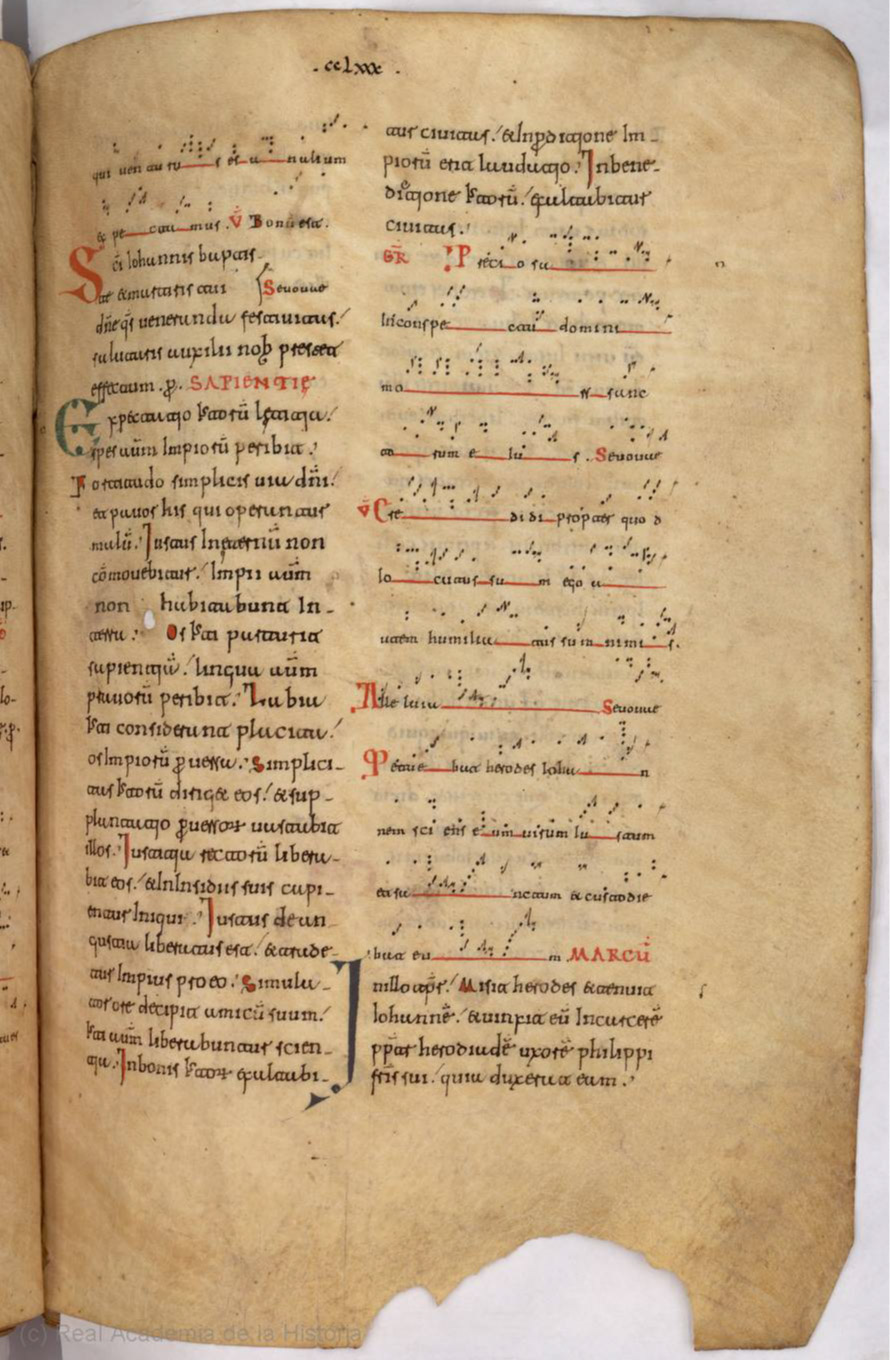 . cclxxx .
qui uen tu ru s es a nullum
& pec ca mus. V Bonu est.
Sci Iohannis baptis
te & martiris tui Seuouae
dne qs ueneranda festiuitas.
salutaris auxilii nob prestet
effectum. p. SAPIENTIE
Expectatio iustoru letitia.
spes autm impioru peribit.
Fortitudo simplicis uia dni.
et pauor his qui operantur
malu. Iustus In eternu non
comouebitur. Impii autm
non habitabunt In
terra. Os iusti parturit
sapientia. lingua autm
prauoru peribit. Labia
iusti considerant placita.
os Impioru puersa. Simplici
tas iustoru diriget eos. & sup
plantatio puersor uastabit
illos. Iustitia rectoru libera
bit eos. & In Insidiis suis capi
entur Iniqui. Iustus de an
gustia liberatus est. & trade
tur Impius pro eo. Simula
tor ore decipit amicu suum.
iusti autm liberabuntur scien
tia. In bonis iustor exultabi
tur ciuitas. & In pditione Im
pioru erit laudatio. In bene
dictione iustoru. exultabitur
ciuitas.
GR Preci o sa
In conspe ctu domini
mo rs sanc
to rum e iu s. Seuouae
V Cre di di propter quo d
lo cutus su m ego a
utem humilia tus sum nimi s.
Alleluia Seuouae
bat herodes Ioha n
nem sciens eum uirum iu stum
et sa nctum & custodie
bat eu m MARCU
In illo tpr. Misit herodes & tenuit
Iohanne. & uinxit eu In carcere
ppter herodiade uxore philippi
fris sui. quia duxerat eam.
(c) Real Academia de la Historia